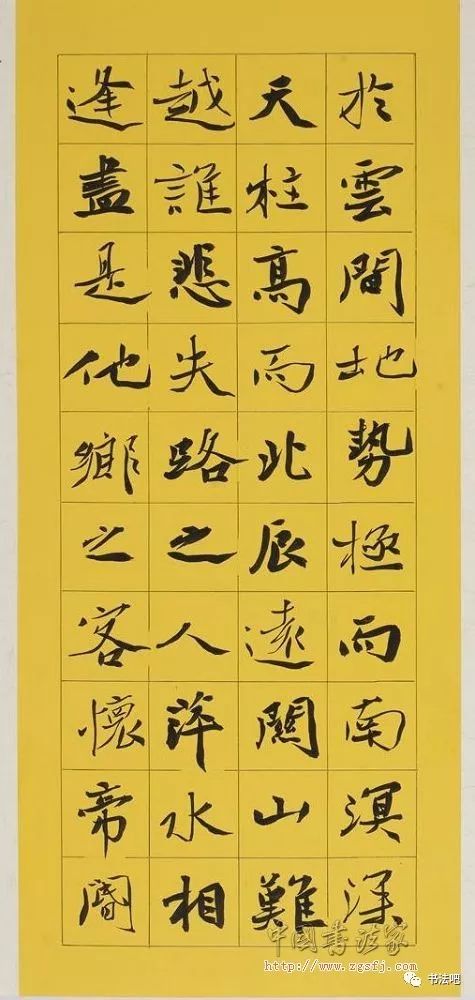 於雲間地勢極而南溟深
天柱高而北辰遠關山難
越誰悲失路之人萍水相
逢盡是他鄉之客懷帝閽
中国书法家
http://www.zgsfj.com
书法吧